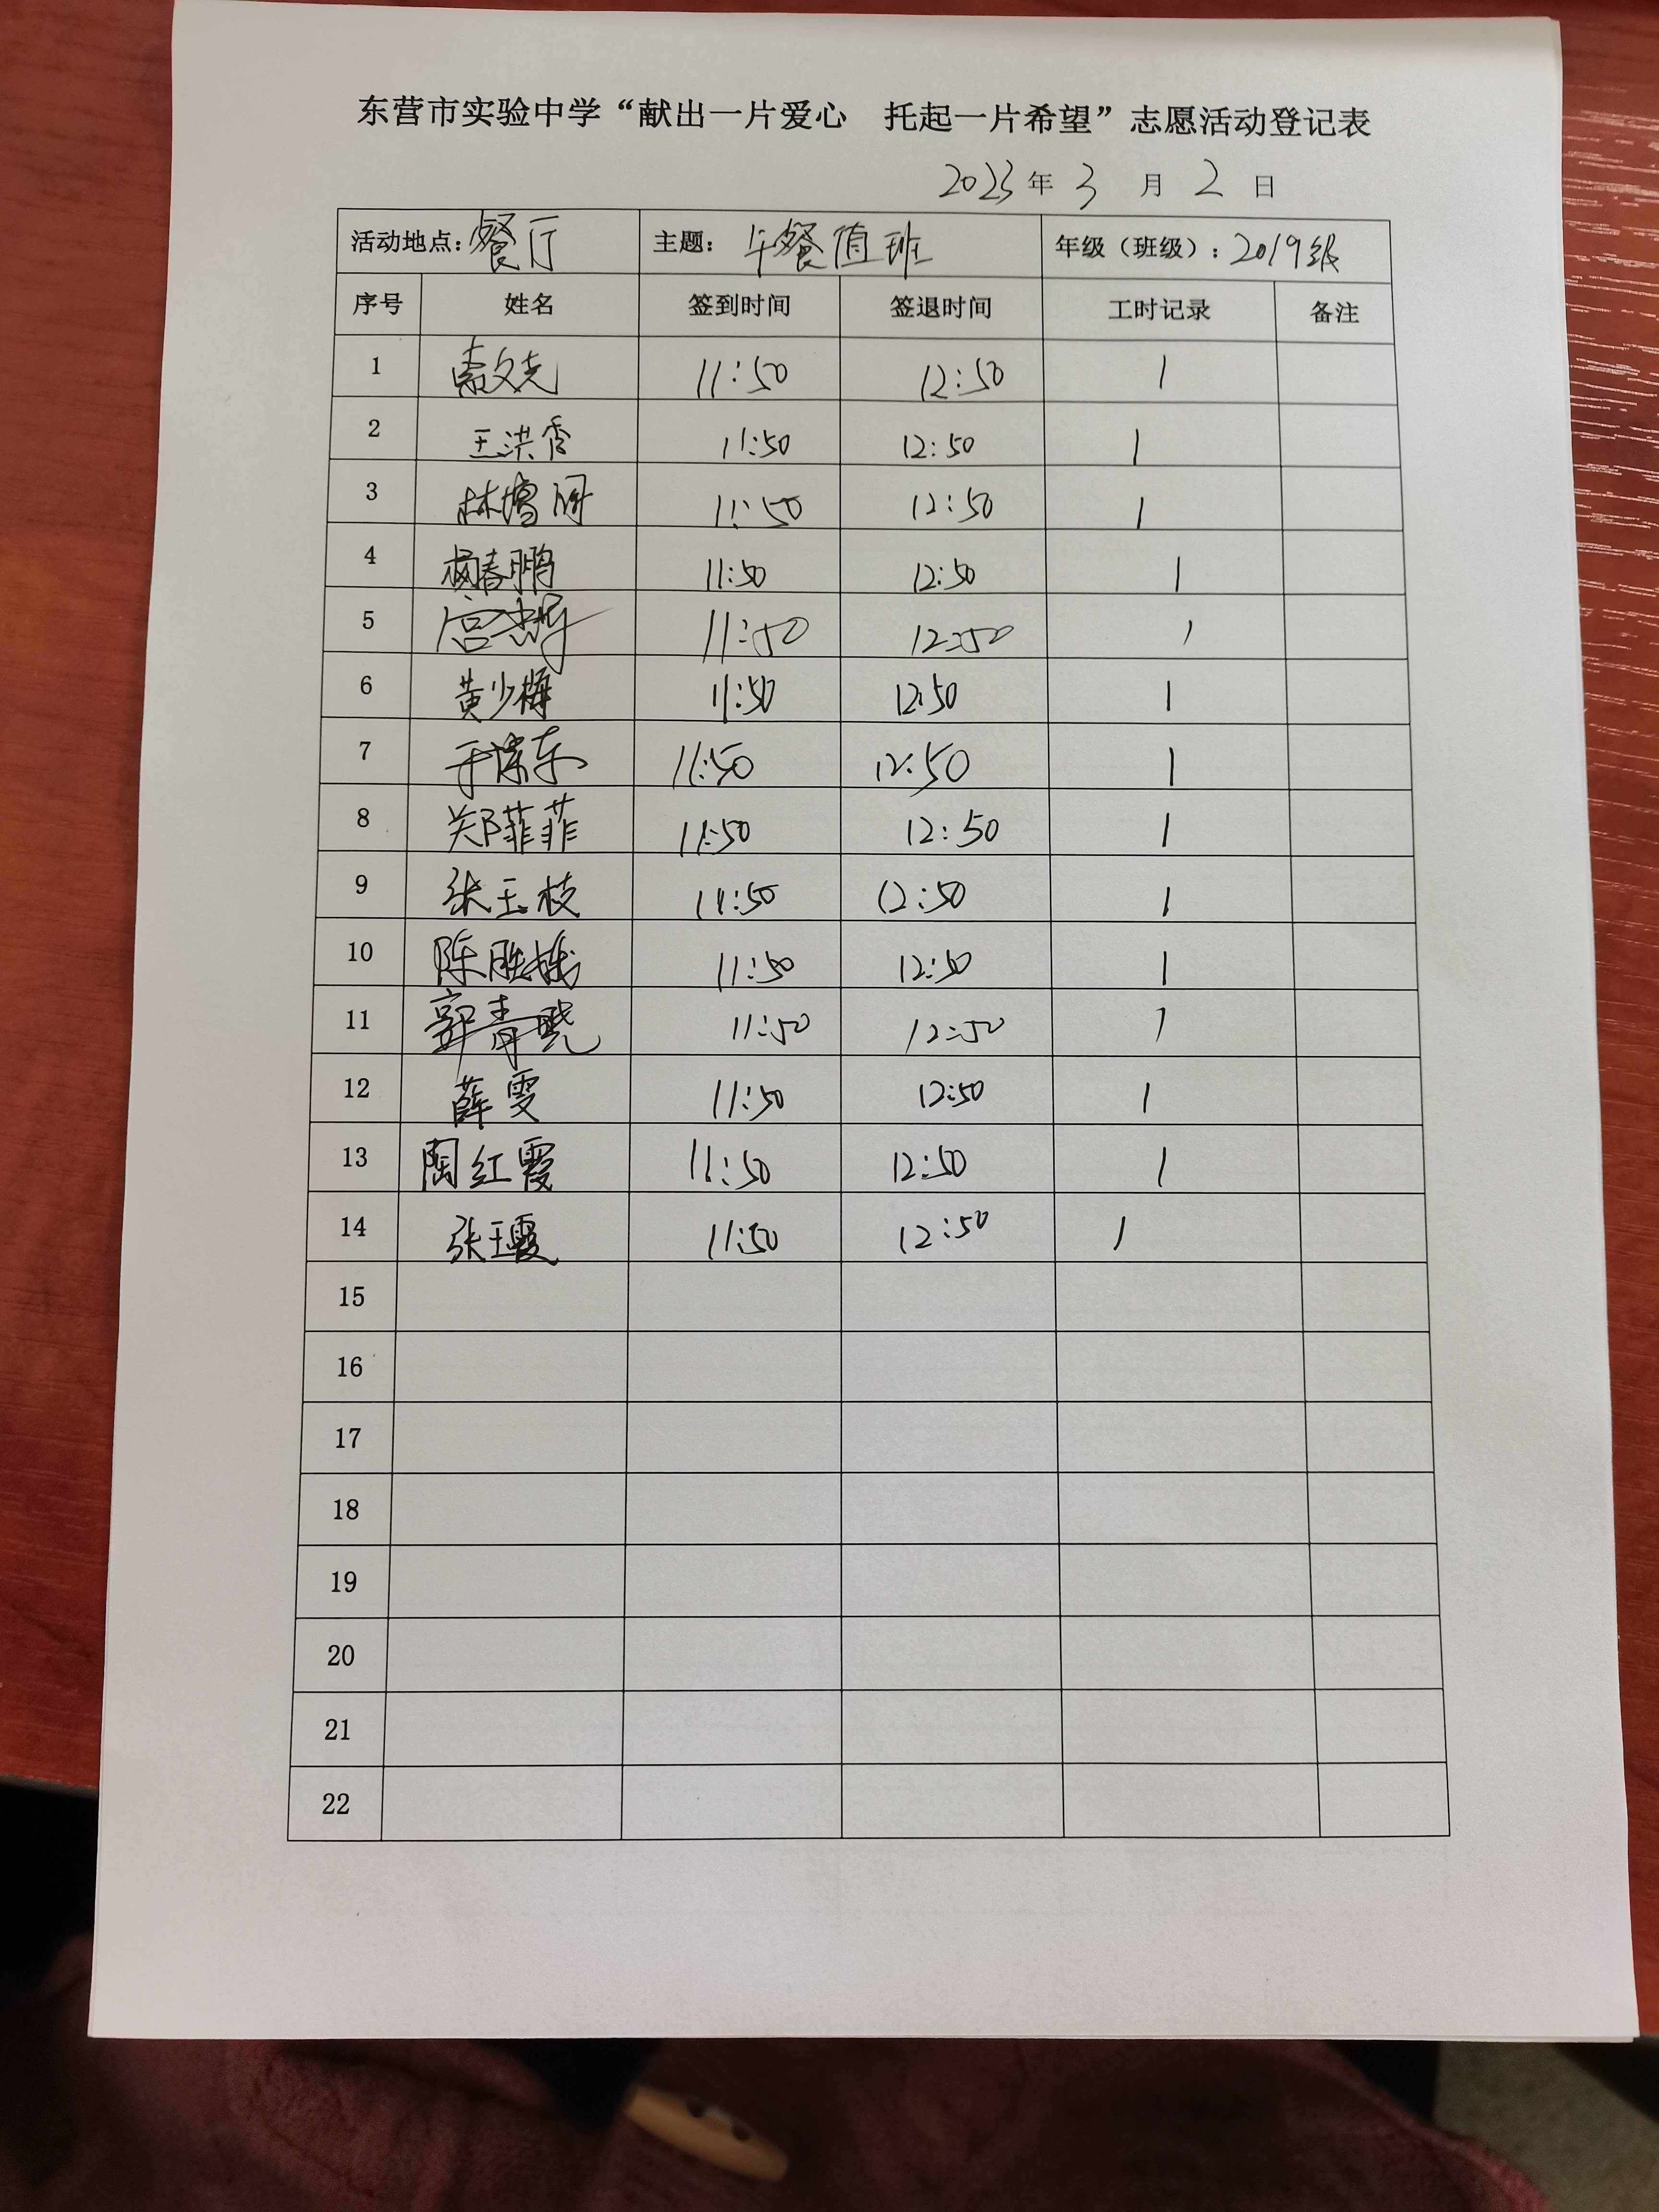 东营市实验中学“献出一片爱心 托起一片希望”志愿活动登记表
2023年 3 月 2 日
活动地点：餐厅 主题：午餐值班 年级（班级）：2019级
序号 姓名 签到时间 签退时间 工时记录 备注
1 11:50 12:50 1
2 王洪秀 11:50 12:50 1
3 11:50 12:50 1
4 杨春鹏 11:50 12:50 1
5 11:50 12:50 1
6 黄少梅 11:50 12:50 1
7 11:50 12:50 1
8 郑菲菲 11:50 12:50 1
9 张玉枝 11:50 12:50 1
10 陈胜 11:50 12:50 1
11 郭青晓 11:50 12:50 1
12 薛雯 11:50 12:50 1
13 陶红霞 11:50 12:50 1
14 张玉霞 11:50 12:50 1
15
16
17
18
19
20
21
22